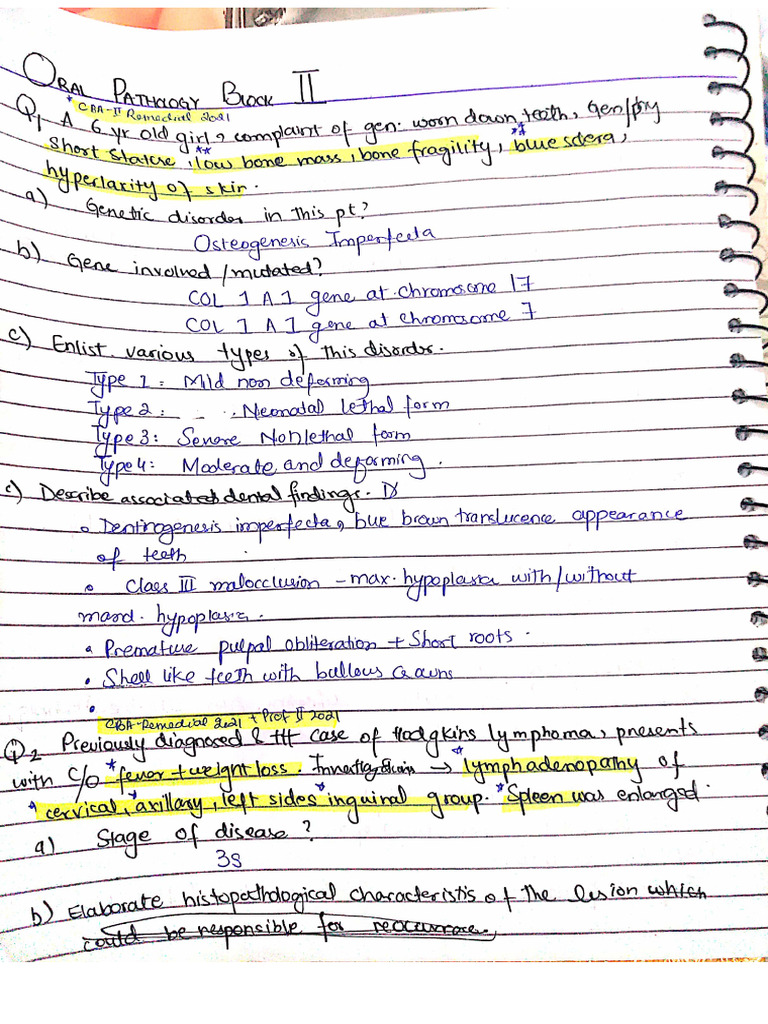 ORAL PATHOLOGY BLOCK II
* CBA-II Remedial 2021
Q1 A 6 yr old girl, complaint of gen. worn down teeth, Gen/phy
Short stature, low bone mass, bone fragility, blue sclera,
hyperlaxity of skin.
a) Genetic disorder in this pt?
Osteogenesis Imperfecta
b) Gene involved/mutated?
COL 1 A 1 gene at chromosome 17
COL 1 A 1 gene at chromosome 7
c) Enlist various types of this disorder.
Type 1: Mild non deforming
Type 2: Neonatal lethal form
Type 3: Severe Nonlethal form
Type 4: Moderate and deforming.
c) Describe associated dental findings.
Dentinogenesis imperfecta, blue brown translucence appearance
of teeth
Class III malocclusion - max. hypoplasia with/without
mand. hypoplasia.
• Premature pulpal obliteration + Short roots.
• Shell like teeth with bullous crowns
•
CBA-Remedial 2021 + Prof II 2021
Q2 Previously diagnosed & ttt case of Hodgkins lymphoma, presents
with C/O * fever + weight loss. Investigations → * lymphadenopathy of
* cervical, * axillary, left sides * inguinal group. * Spleen was enlarged.
a) Stage of disease?
3S
b) Elaborate histopathological characteristis of the lesion which
could be responsible for reoccurrence.